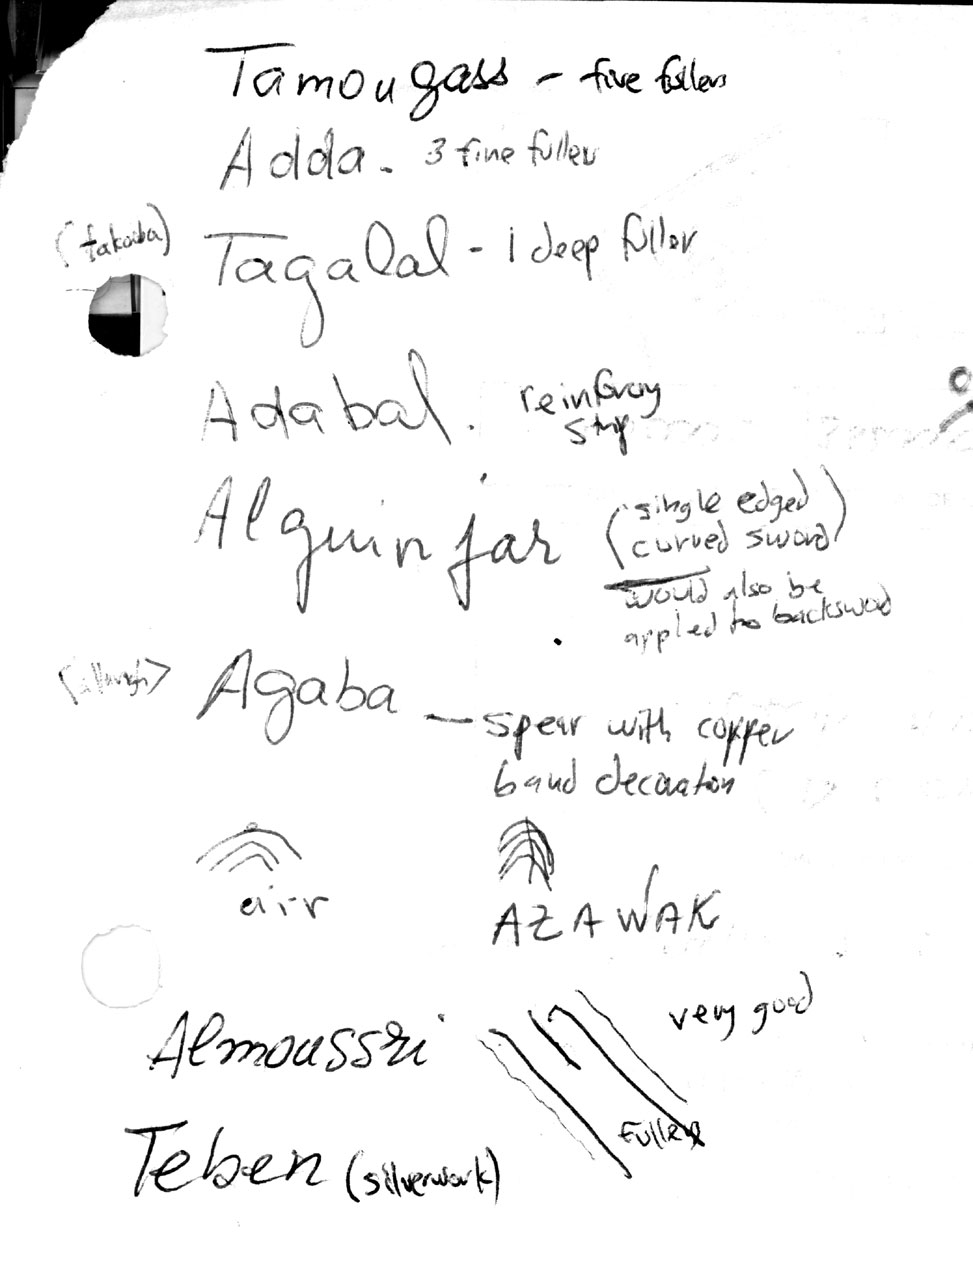 Tamougass - five fullers
Adda - 3 fine fuller
(takoba)
Tagalal - 1 deep fuller
Adabal.
reinforcing
strip
Alguinjar
(single edged
curved sword)
would also be
applied to backsword
Agaba
- spear with copper
band decoration
airr
AZAWAK
very good
Almoussri
fullers
Teben (silverwork)